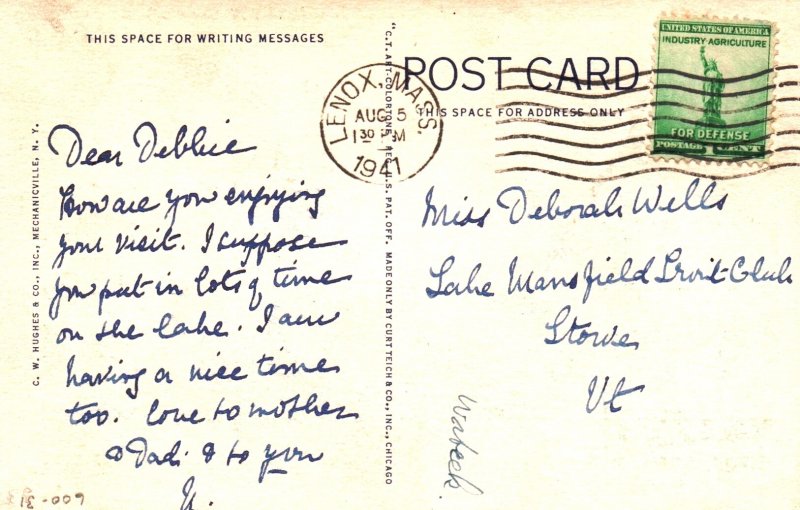 THIS SPACE FOR WRITING MESSAGES
Dear Debbie
How are you enjoying
your visit. I suppose
you put in lots of time
on the lake. I am
having a nice time
too. Love to mother
& Dad. & to you
C. W. HUGHES & CO., INC., MECHANICVILLE, N. Y.
"C.T. ART-COLORTONE" REG. U.S. PAT. OFF. MADE ONLY BY CURT TEICH & CO., INC., CHICAGO
POST CARD
THIS SPACE FOR ADDRESS ONLY
LENOX, MASS.
AUG 5
1 30 PM
1941
UNITED STATES OF AMERICA
INDUSTRY AGRICULTURE
FOR DEFENSE
POSTAGE 1 CENT
Miss Deborah Wells
Lake Mansfield Trout Club
Stowe
Vt
600-31